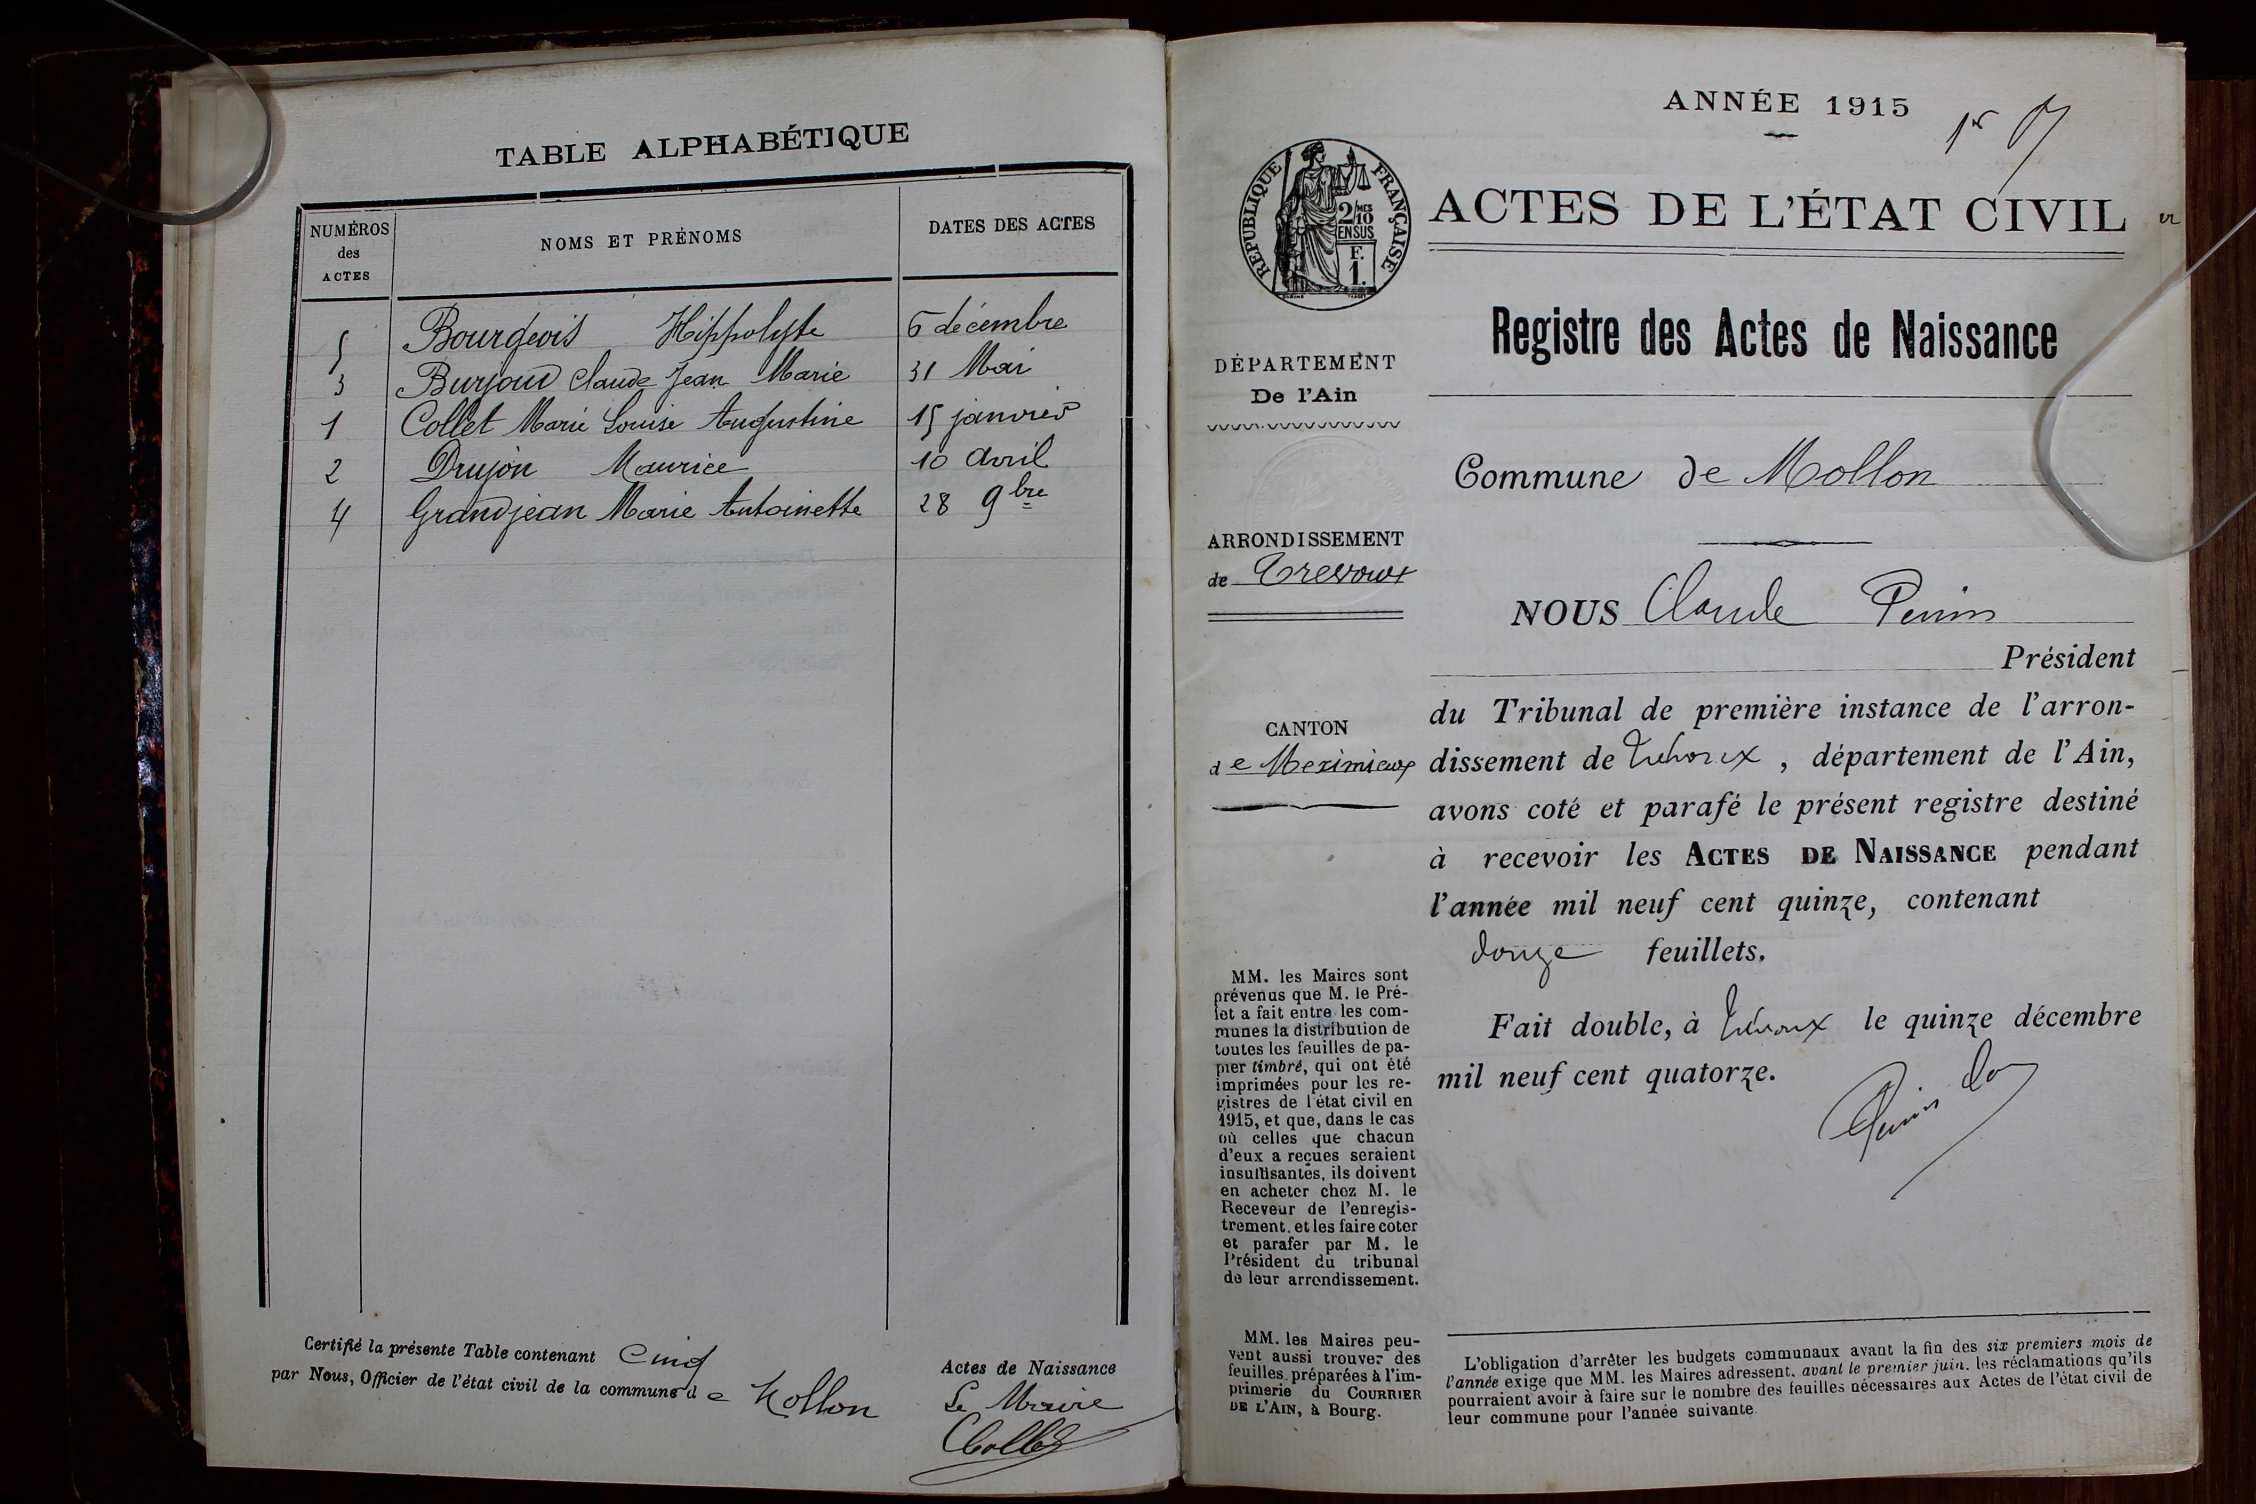 TABLE ALPHABÉTIQUE
NUMÉROS
des
ACTES
NOMS ET PRÉNOMS
DATES DES ACTES
5 Bourgeois Hippolyte 6 décembre
3 Burjoud Claude Jean Marie 31 Mai
1 Collet Marie Louise Augustine 15 janvier
2 Drujon Maurice 10 Avril
4 Grandjean Marie Antoinette 28 9bre
Certifié la présente Table contenant Cinq Actes de Naissance
par Nous, Officier de l'état civil de la commune de Mollon
Le Maire
Collet
ANNÉE 1915
1er
ACTES DE L'ÉTAT CIVIL
RÉPUBLIQUE FRANÇAISE
2/MES
10
EN SUS
F.
1.
Registre des Actes de Naissance
DÉPARTEMENT
De l'Ain
Commune de Mollon
ARRONDISSEMENT
de Trevoux
CANTON
de Meximieux
NOUS Claude Perrin
Président
du Tribunal de première instance de l'arron-
dissement de Trévoux, département de l'Ain,
avons coté et parafé le présent registre destiné
à recevoir les ACTES DE NAISSANCE pendant
l'année mil neuf cent quinze, contenant
douze feuillets.
Fait double, à Trévoux le quinze décembre
mil neuf cent quatorze.
MM. les Maires sont
prévenus que M. le Pré-
fet a fait entre les com-
munes la distribution de
toutes les feuilles de pa-
pier timbré, qui ont été
imprimées pour les re-
gistres de l'état civil en
1915, et que, dans le cas
où celles que chacun
d'eux a reçues seraient
insuffisantes, ils doivent
en acheter chez M. le
Receveur de l'enregis-
trement, et les faire coter
et parafer par M. le
Président du tribunal
de leur arrondissement.
MM. les Maires peu-
vent aussi trouver des
feuilles préparées à l'im-
primerie du COURRIER
DE L'AIN, à Bourg.
L'obligation d'arrêter les budgets communaux avant la fin des six premiers mois de
l'année exige que MM. les Maires adressent, avant le premier juin, les réclamations qu'ils
pourraient avoir à faire sur le nombre des feuilles nécessaires aux Actes de l'état civil de
leur commune pour l'année suivante.